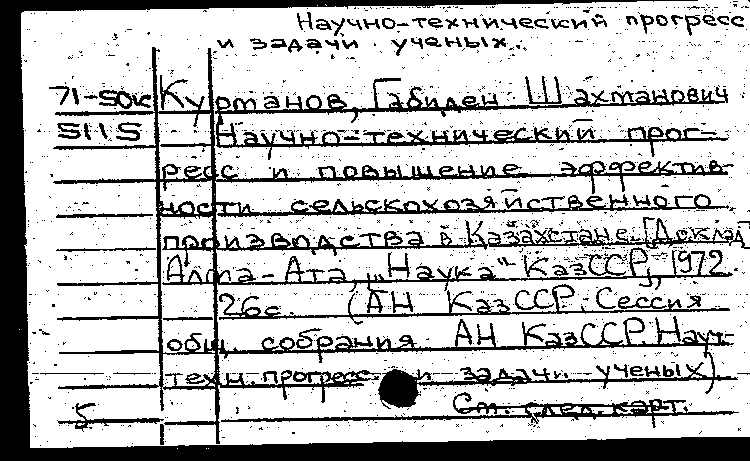 Научно-технический прогресс
и задачи ученых.
71-50к Курманов, Габиден Шахманович
5115 Научно-технический прог-
ресс и повышение эффектив-
ности сельскохозяйственного
производства в Казахстане. [Доклад]
Алма-Ата, "Наука" КазССР, 1972.
26с. (АН КазССР. Сессия
общ. собрания АН КазССР. Науч-
техн. прогресс и задачи ученых)
5 См. след. карт.